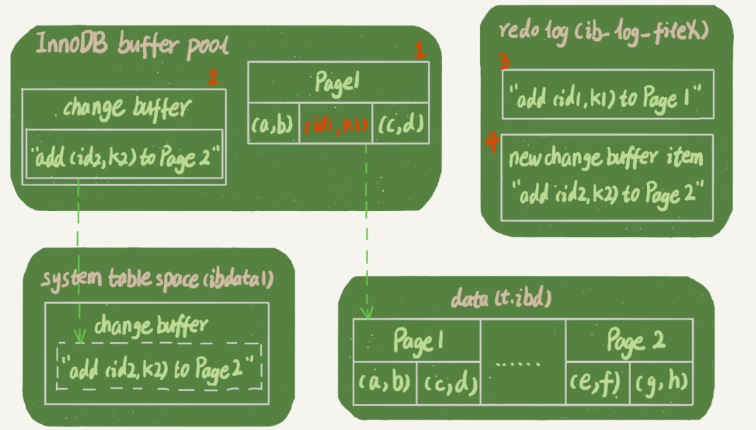 InnoDB buffer pool
2
change buffer
"add (id2, k2) to Page 2"
1
Page1
(a,b) (id1, k1) (c,d)
redo log (ib_log_fileX)
3
"add (id1, k1) to Page 1"
4
new change buffer item
"add (id2, k2) to Page 2"
system table space (ibdata1)
change buffer
"add (id2, k2) to Page 2"
data (t.ibd)
Page1 ...... Page 2
(a,b) (c,d) (e,f) (g,h)